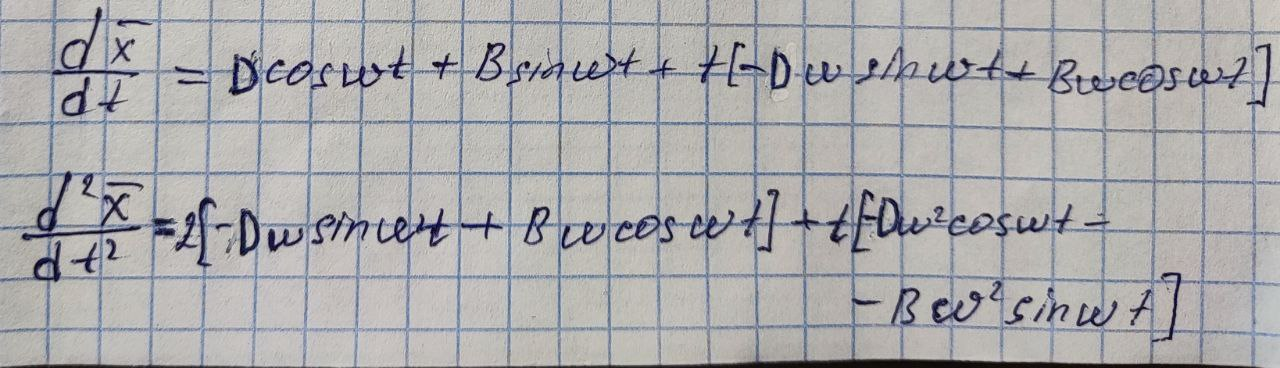 dx̄/dt = Dcosωt + Bsinωt + t[-Dω sinωt + Bωcosωt]
d²x̄/dt² = 2[-Dωsinωt + Bωcosωt] + t[-Dω²cosωt -
- Bω²sinωt]